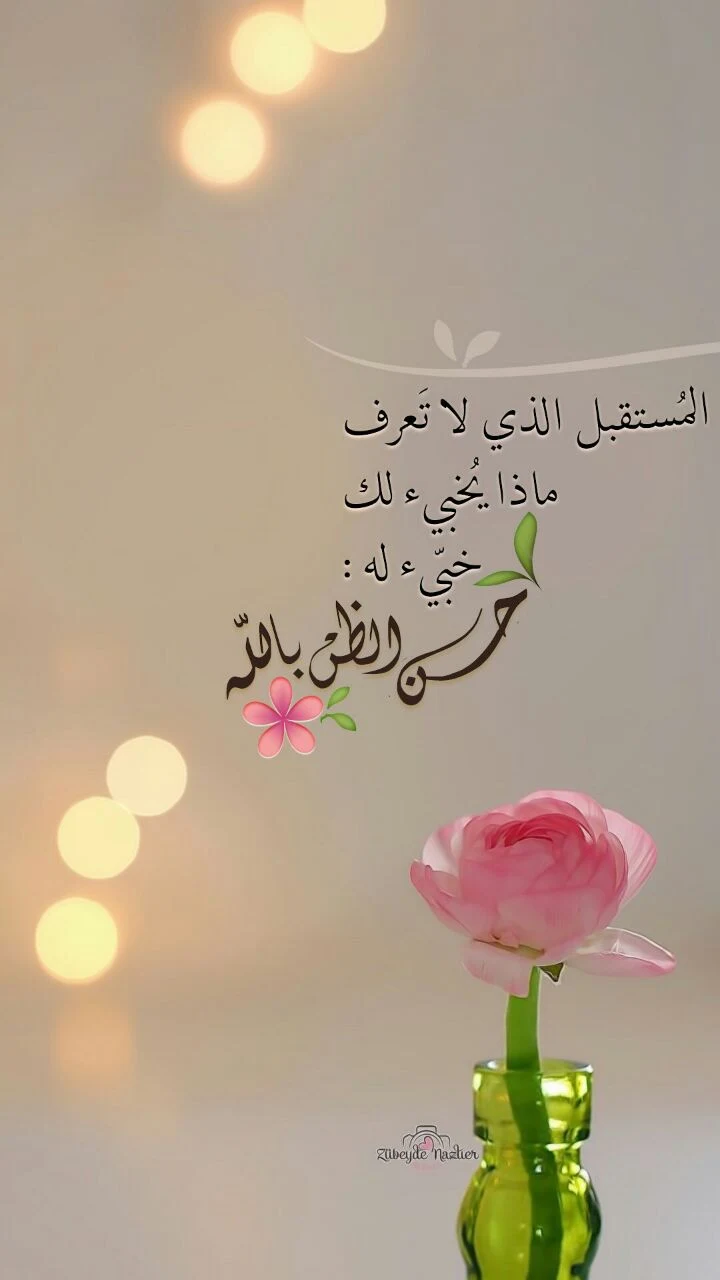 المُستقبل الذي لا تَعرف
ماذا يُخبيء لك
خبّيء له :
حسن الظن بالله
Zübeyde Nazlıer